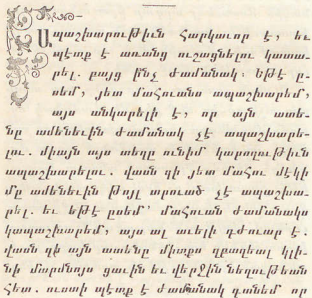 Ապաշխարութիւն Հարկաւոր է, եւ
պէտք է առանց ուշացնելու կատա-
րել. բայց ինչ ժամանակ։ Եթէ ը-
սեմ, յետ մահուանս ապաշխարեմ,
այս անկարելի է, որ այն ատե-
նը ամենեւին ժամանակ չէ ապաշխարե-
լու. միայն այս տեղը ունիմ կարողութիւն
ապաշխարելու. վասն զի յետ մահու մէկի
մը ամենեւին թոյլ արուած չէ ապաշխա-
րել. եւ եթէ ըսեմ՝ մահուան ժամանակս
կապաշխարեմ, այս ալ աւելի դժուար է.
վասն զի այն ատենը միտքս զբաղեալ կլի-
նի մարմնոյս ցաւին եւ վերջին նեղութեան
Հետ. ուստի պէտք է ժամանակ գտնեմ որ